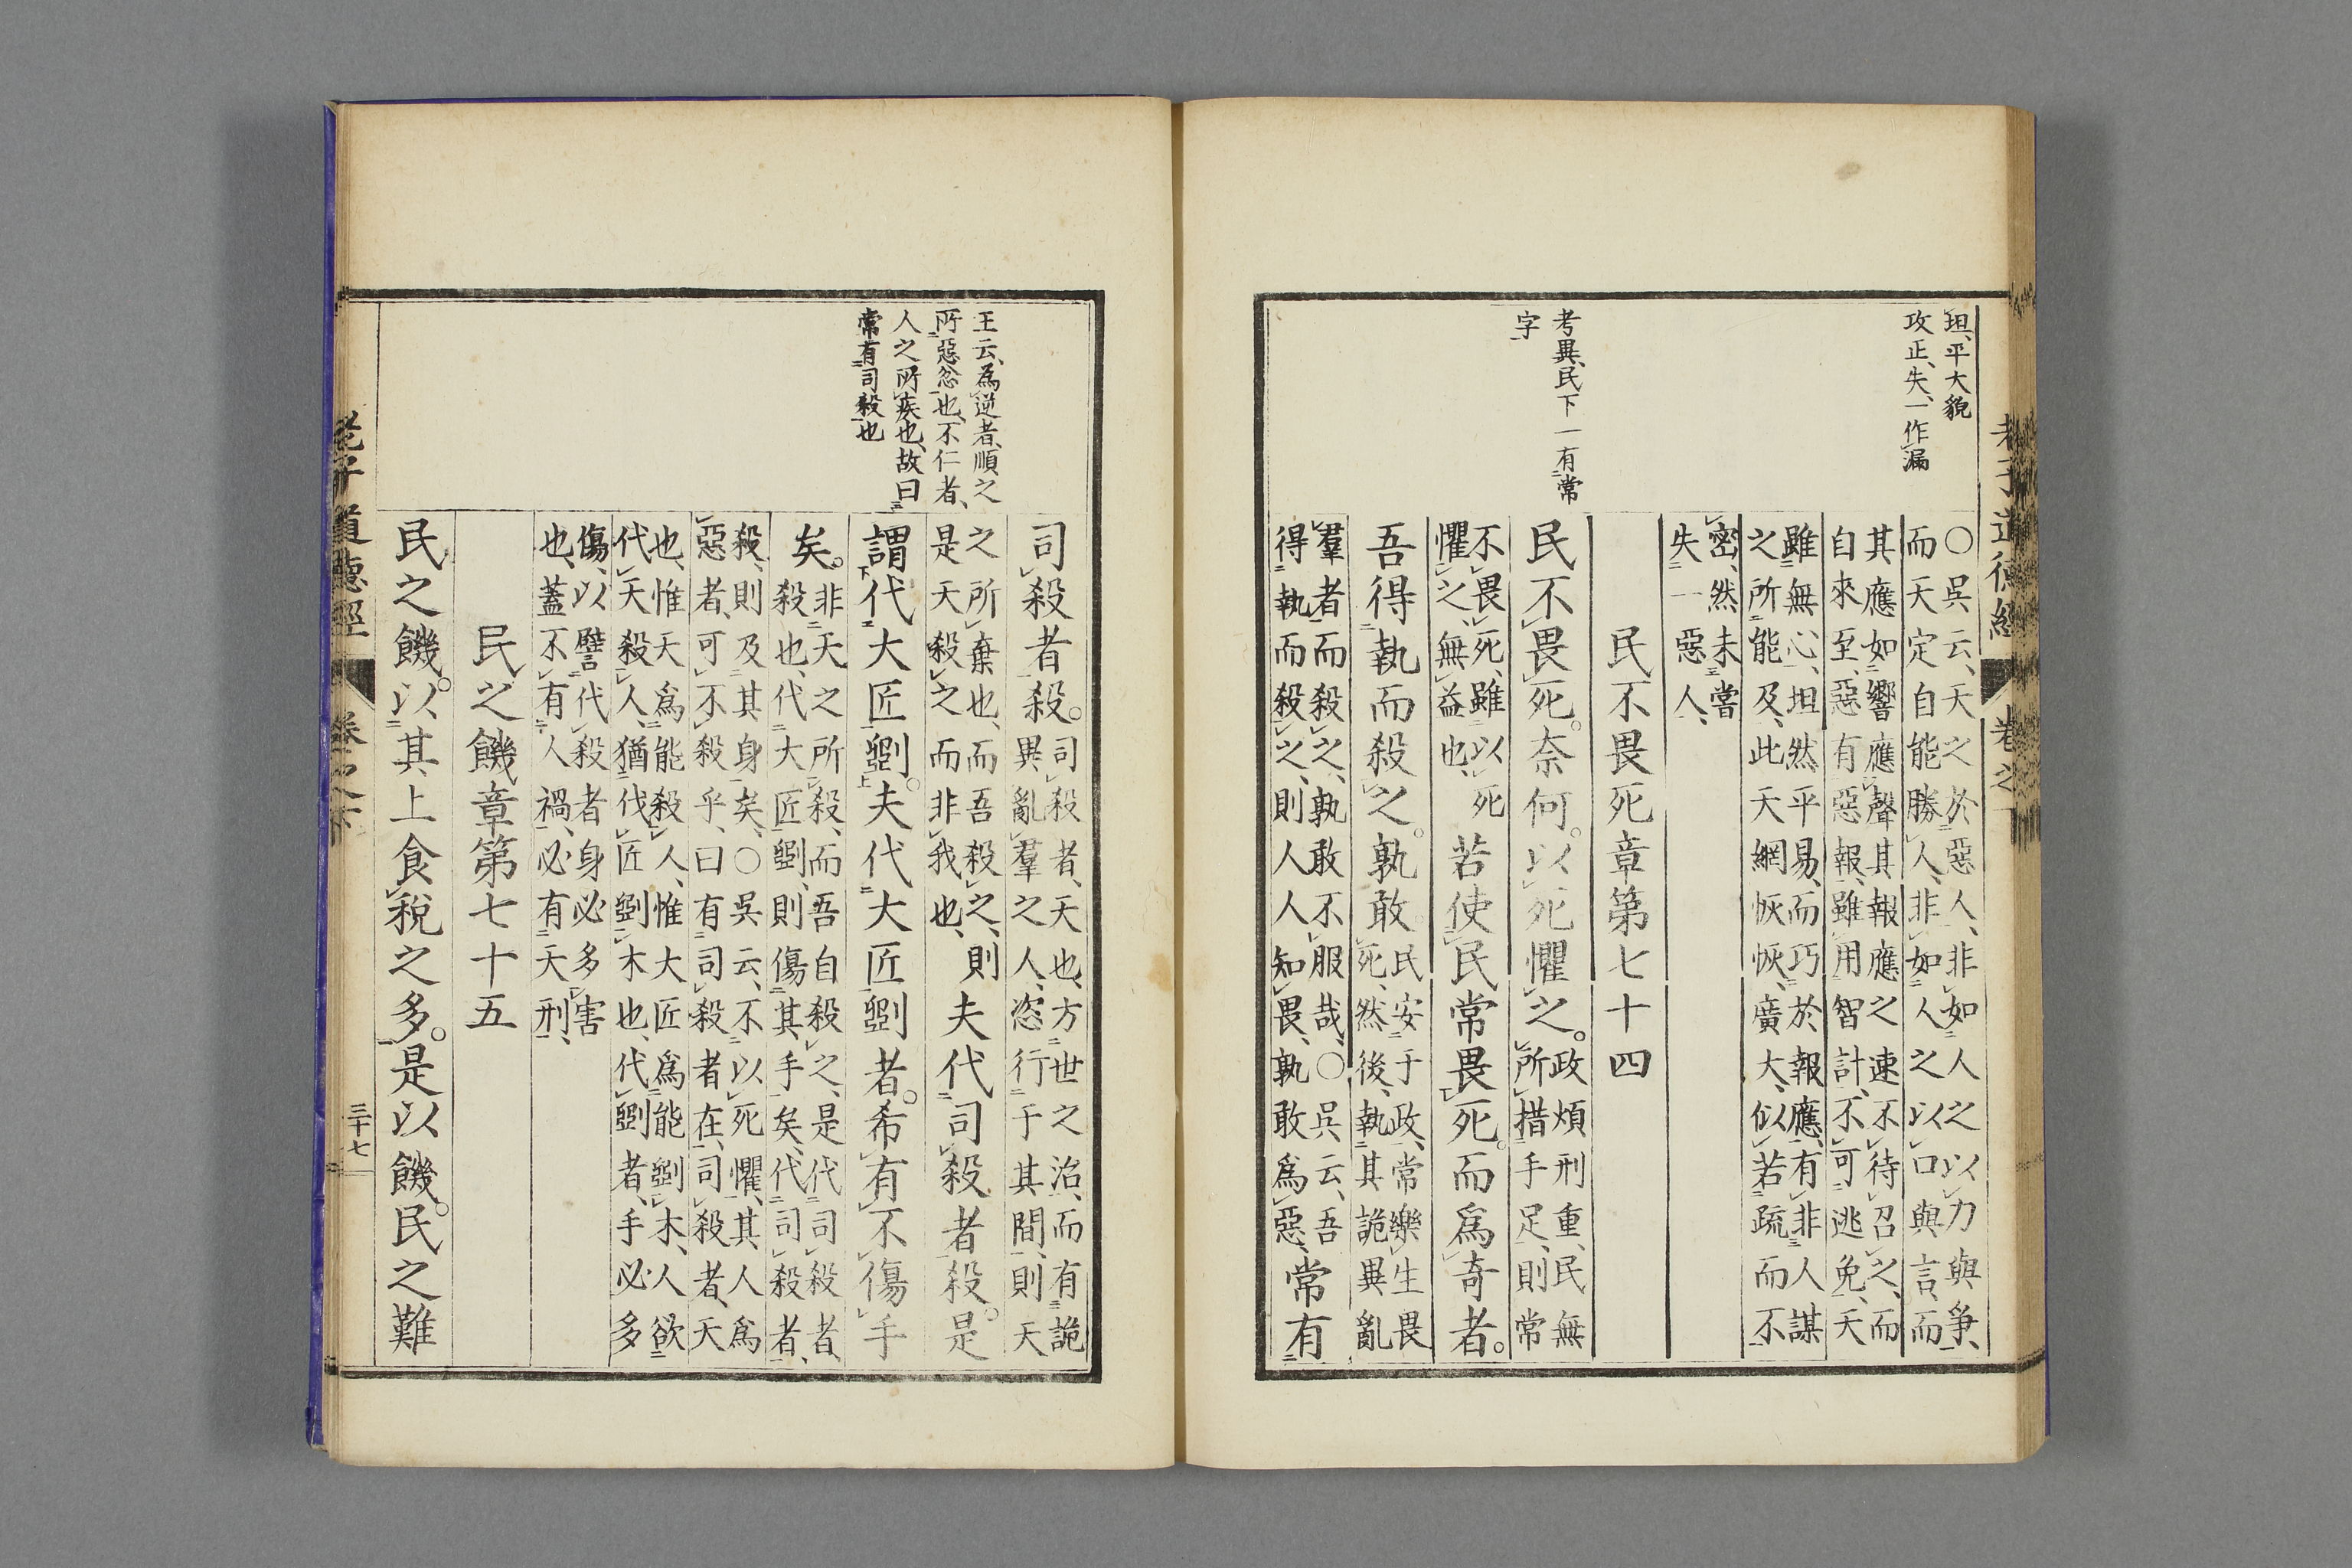 坦、平大貌
攻正、失、一作漏
考異、民下一有常
字
〇吳云、天之於惡人、非如人之以力與爭、
而天定自能勝人、非如人之以口與言、而
其應如響應聲、其報應之速、不待召之、而
自來至、惡有惡報、雖用智計、不可逃免、天
雖無心、坦然平易、而巧於報應、有非人謀
之所能及、此天網恢恢、廣大、似若疏而不
密、然未嘗
失一惡人、
民不畏死章第七十四
民不畏死。奈何。以死懼之。
政煩刑重、民無
所措手足、則常
不畏死、雖以死
懼之、無益也、
若使民常畏死。而爲奇者。
吾得執而殺之。孰敢。
民安于政、常樂生畏
死、然後、執其詭異亂
羣者、而殺之、孰敢不服哉、〇吳云、吾
得執而殺之、則人人知畏、孰敢爲惡、
常有
老子道德經 卷之下
王云、為逆者、順之
所惡忿也、不仁者、
人之所疾也、故曰
常有司殺也
司殺者殺。
司殺者、天也、方世之治、而有詭
異亂羣之人、恣行于其間、則天
之所棄也、而吾殺之、則
是天殺之、而非我也、
夫代司殺者殺。是
謂代大匠斲。夫代大匠斲者。希有不傷手
矣。
非天之所殺、而吾自殺之、是代司殺者
殺也、代大匠斲、則傷其手矣、代司殺者、
殺、則及其身矣、〇吳云、不以死懼、其人爲
惡者、可不殺乎、曰有司殺者在、司殺者、天
也、惟天爲能殺人、惟大匠爲能斲木、人欲
代天殺人、猶代匠斲木也、代斲者、手必多
傷、以譬代殺者身必多害
也、蓋不有人禍、必有天刑、
民之饑章第七十五
民之饑。以其上食稅之多。是以饑。民之難
老子道德經 卷之下 三十七